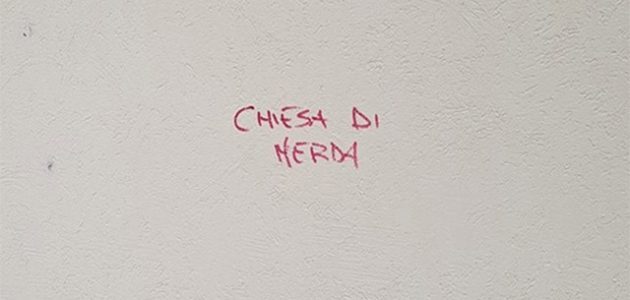 CHIESA DI
MERDA